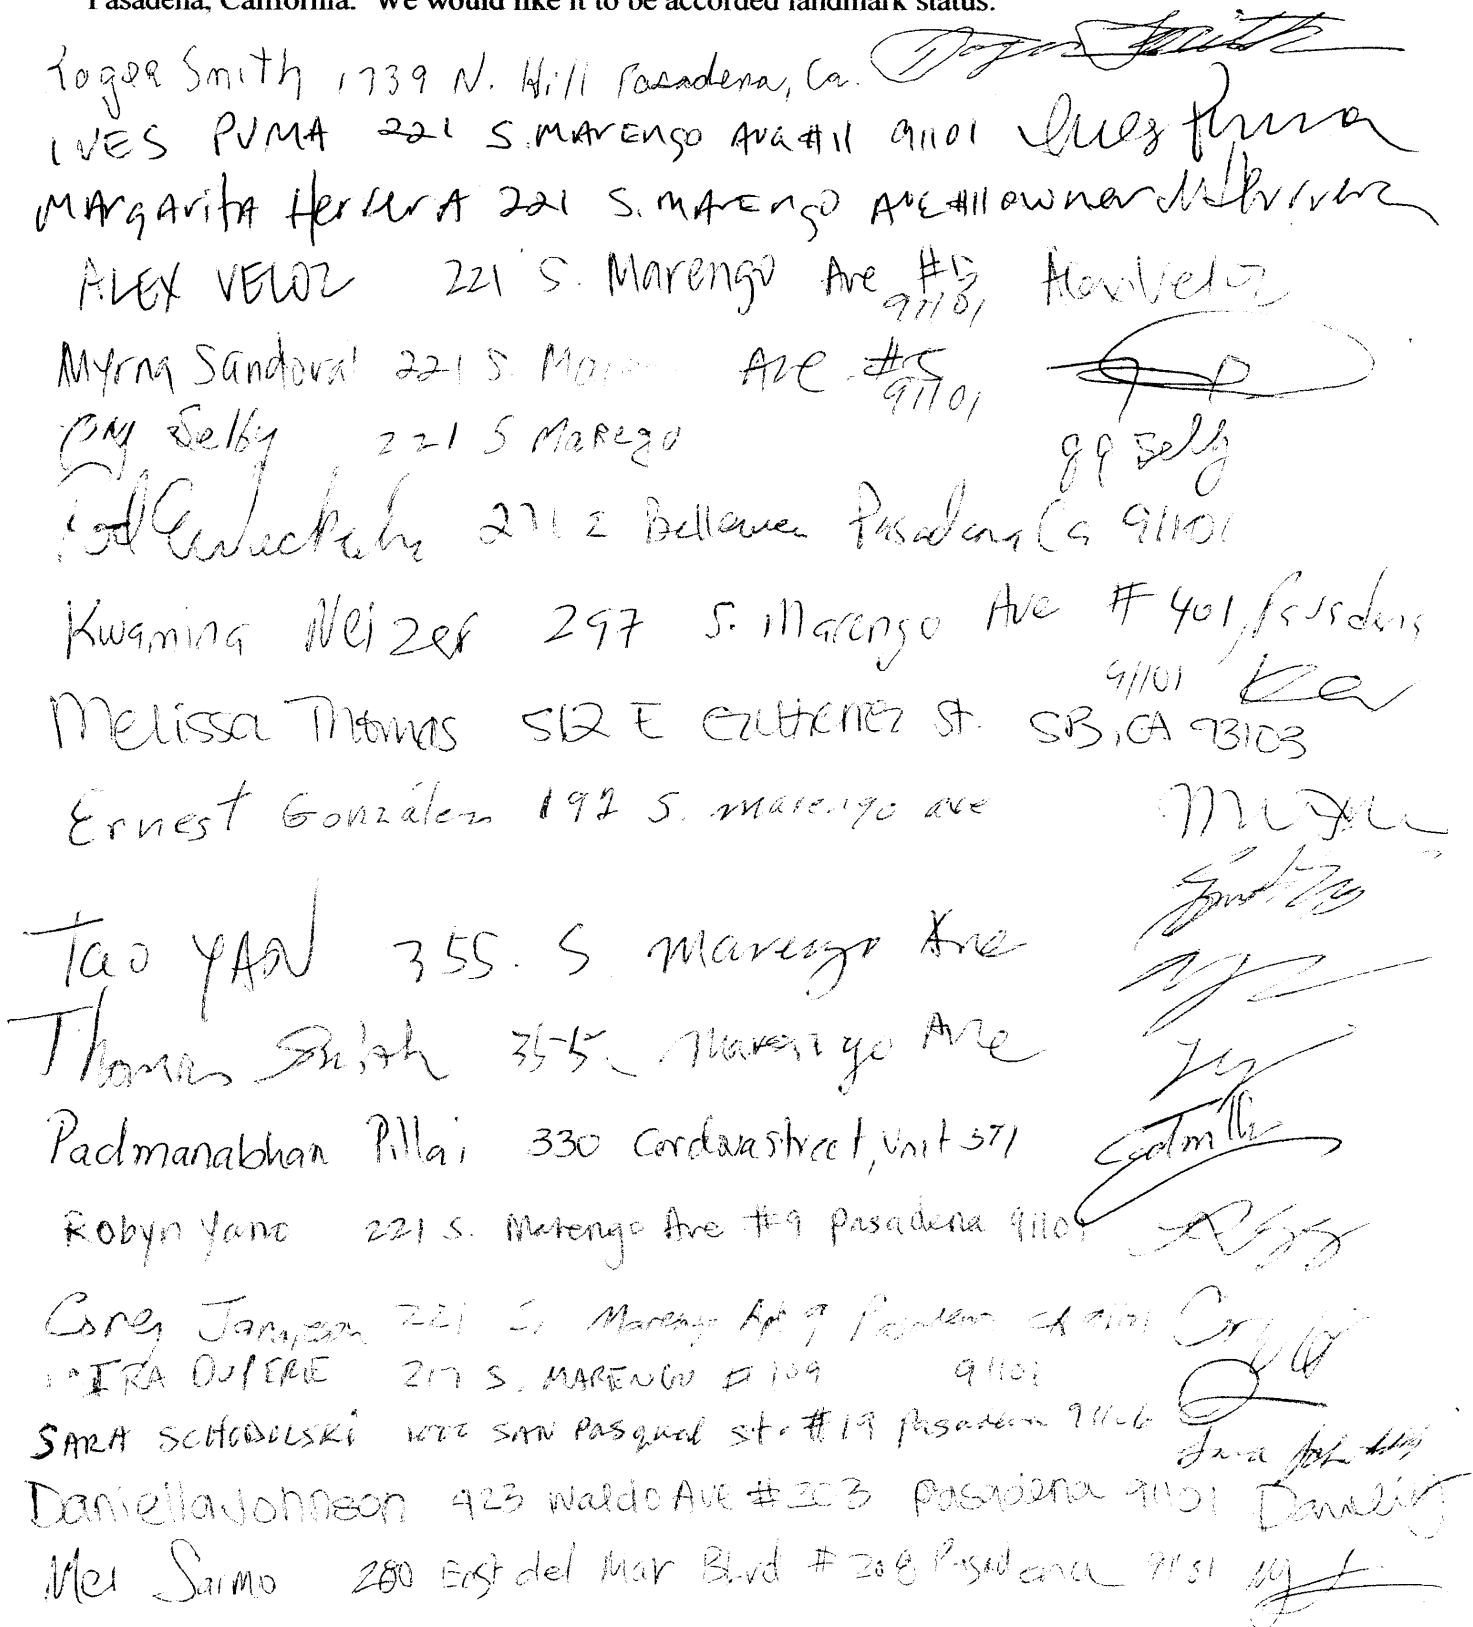 Pasadena, California. We would like it to be accorded landmark status.
Roger Smith 1739 N. Hill Pasadena, Ca. Roger Smith
IVES PUMA 221 S. MARENGO Ave #11 91101 Ives Puma
MARgARitA HerrerA 221 S. MARENgO AVE #11 owner M Herrera
ALEX VELOZ 221 S. Marengo Ave #5 Alex Veloz
91101
Myrna Sandoval 221 S. Ave #5
91101
Selby 221 S Marego gp Selby
E Bellevue Pasadena Ca 91101
Kwamina Neizer 297 S. Marengo Ave # 401, Pasadena
91101
Melissa Thomas 512 E Gutierrez St. SB, CA 93103
Ernest González 192 S. marengo ave
Tao YAN 355. S marengo Ave
Thomas Smith 355 Marengo Ave
Padmanabhan Pillai 330 Cordova street, Unit 371
Robyn Yano 221 S. Marengo Ave #9 Pasadena 91101
Corey Jamieson 221 S. Marengo Apt 9 Pasadena CA 91101
IRA DUPERE 217 S. MARENGO # 109 91101
SARA SAN Pasqual st. #19 Pasadena 91106
Daniella Johnson 423 Waldo AVE # 203 Pasadena 91101
Mei Sarmo 280 East del Mar Blvd # 208 Pasadena 91101